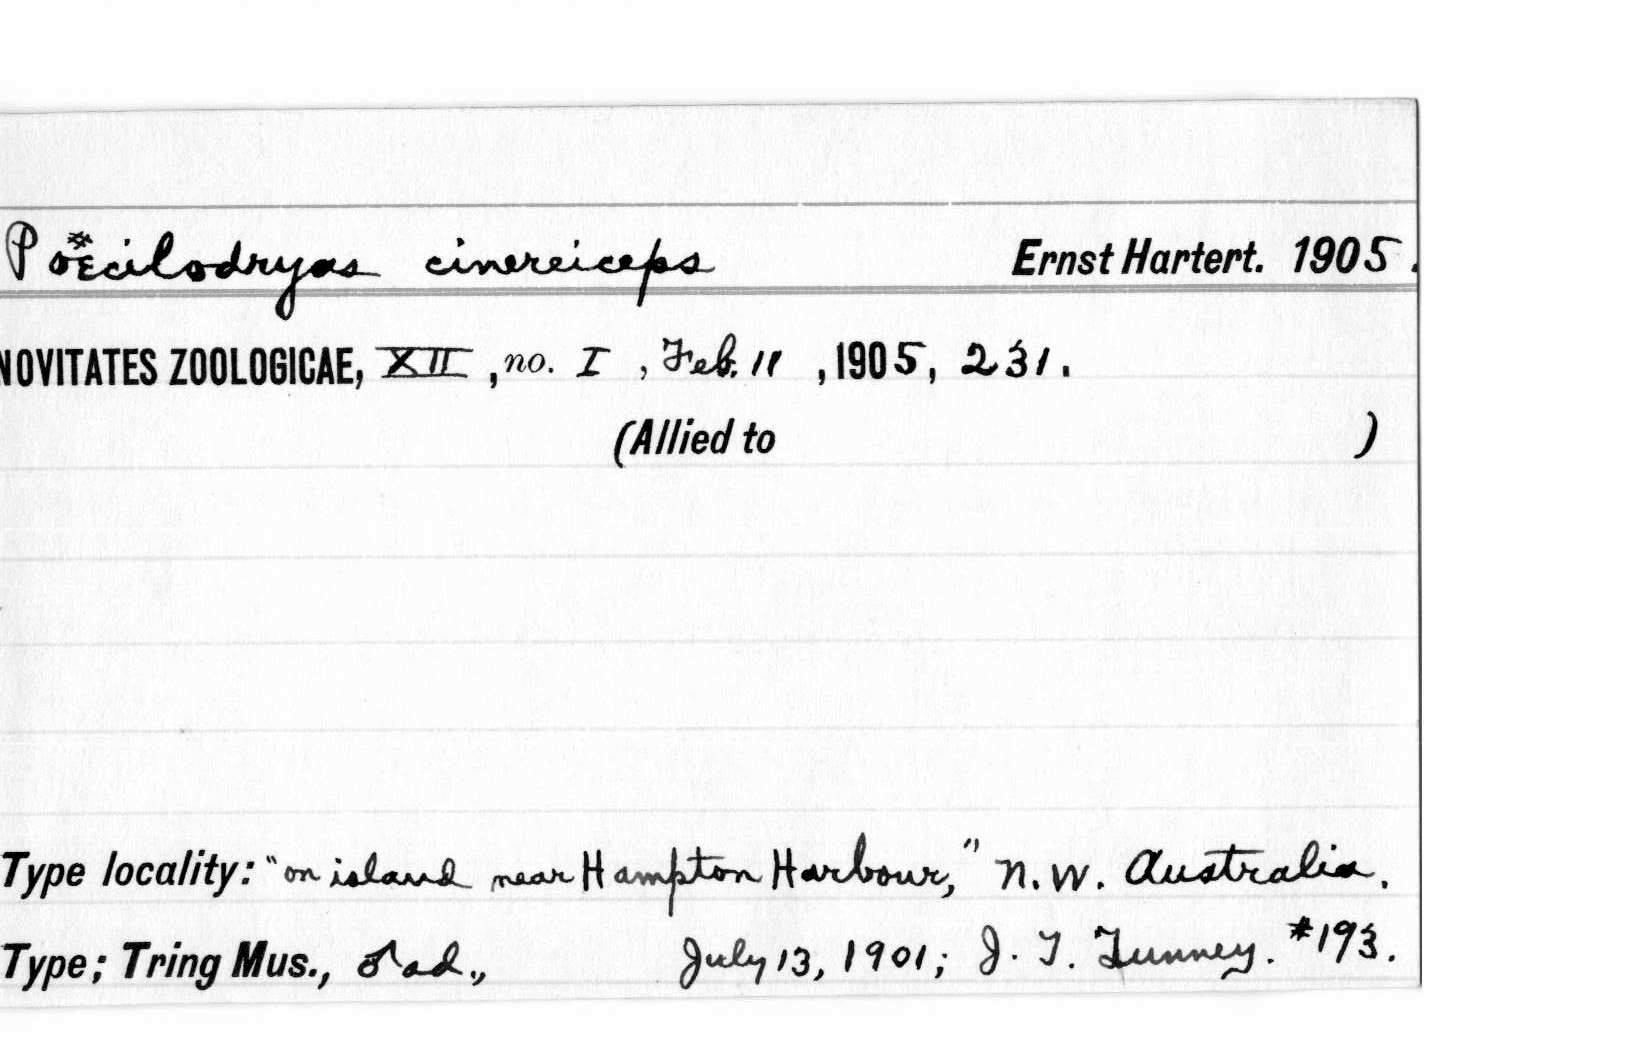 Poecilodryas cinereiceps Ernst Hartert. 1905.
NOVITATES ZOOLOGICAE, XII, no. I, Feb. 11, 1905, 231.
(Allied to )
Type locality: "on island near Hampton Harbour," N.W. Australia.
Type; Tring Mus., ♂ ad., July 13, 1901; J. T. Tunney. #193.